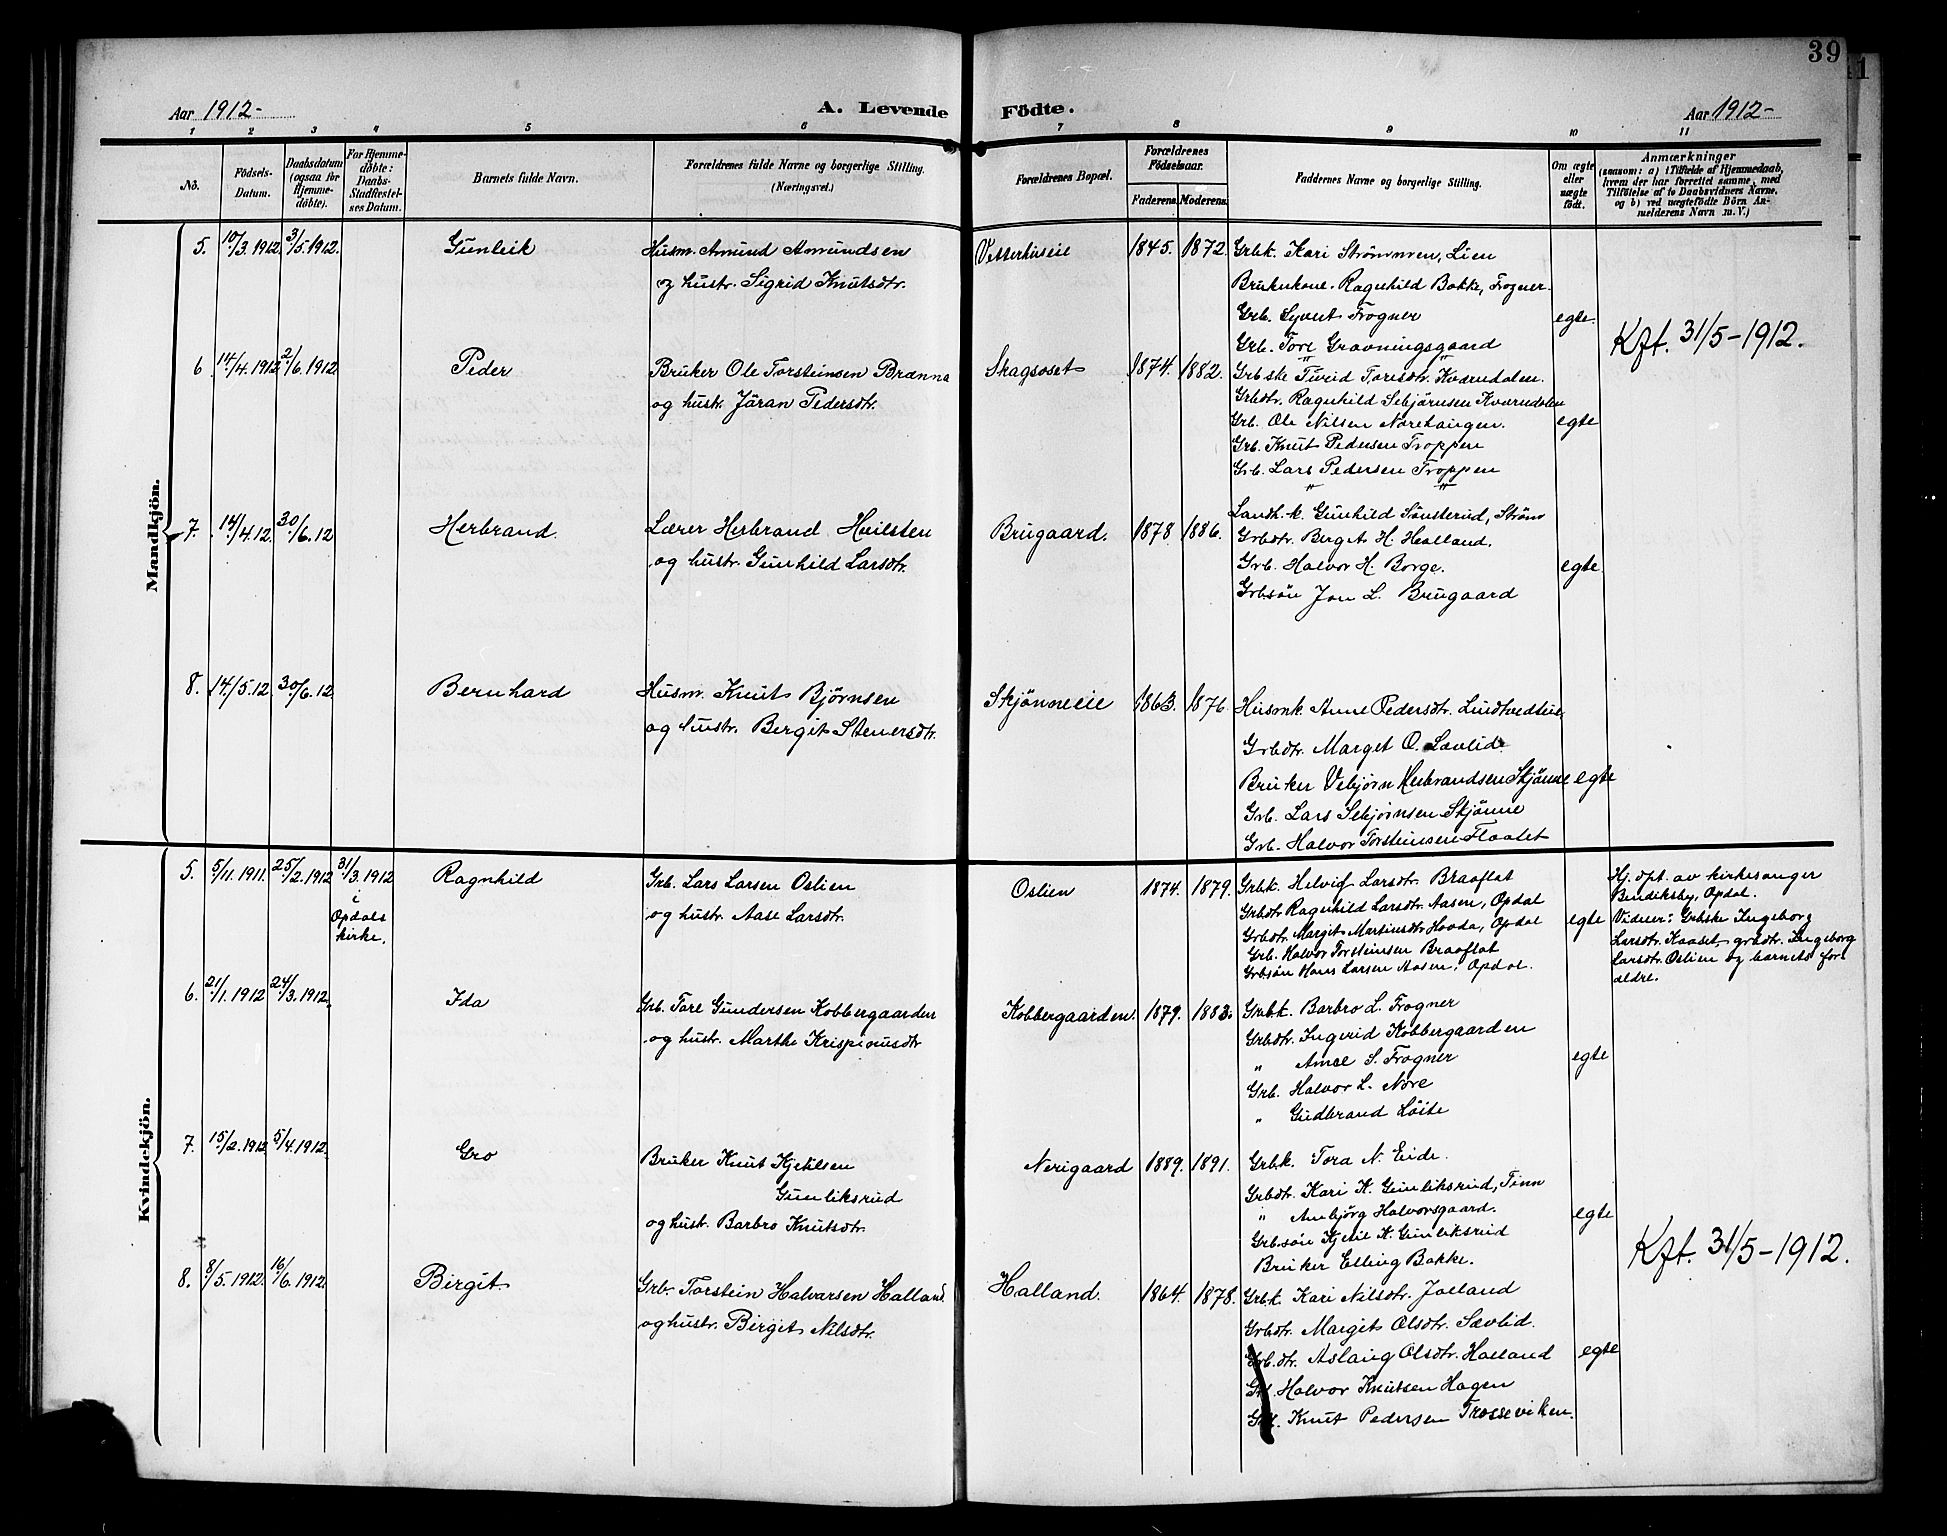 39
Aar 1912-
A. Levende Födte.
Aar 1912-
1 2 3 4 5 6 7 8 9 10 11
No.
Födsels-
Datum.
Daabsdatum
(ogsaa for
Hjemme-
döbte).
For Hjemme-
döbte:
Daabs-
Stadfæstel-
ses Datum.
Barnets fulde Navn.
Forældrenes fulde Navne og borgerlige Stilling.
(Næringsvei.)
Forældrenes Bopæl.
Forældrenes
Födselsaar.
Faderens. Moderens.
Faddernes Navne og borgerlige Stilling.
Om ægte
eller
uægte
födt.
Anmærkninger
(saasom: a) i Tilfælde af Hjemmedaab,
hvem der har forrettet samme, med
Tilföielse af to Daabsvidners Navne,
og b) ved uægtefödte Börn An-
melderens Navn m. V.)
Mandkjön.
5. 10/3.1912 31/5.1912. Gunleik
Husm. Amund Amundsen
og hustr. Sigrid Knutsdtr.
Vesterhuseie 1845. 1872.
Grbk. Kari Strömmen, Lien
Brukerkone. Ragnhild Bakke, Frogner.
Grb. Syvert Frogner
Grb. Tore Gravningsgaard
egte.
Kft. 31/5-1912.
6. 14/4.1912 2/6.1912 Peder
Bruker Ole Torsteinsen Brænna
og hustr. Jöran Pedersdtr.
Skagsoset 1874. 1882.
Grbske Turid Toresdtr. Kværndalen.
Grbdtr. Ragnhild Sebjörnsen Kværndalen
Grb. Ole Nilsen Noretangen.
Grb. Knut Pedersen Troppen
Grb. Lars Pedersen Troppen
egte
7. 14/4.12. 30/6.12 Herbrand.
Lærer Herbrand Heilsten
og hustr. Gunhild Larsdtr.
Brugaard. 1878 1886.
Landh.k. Gunhild Sönsterud, Ström
Grbdtr. Berget H. Halland.
Grb. Halvor H. Borge.
Grbsön Jon L. Brugaard
egte.
8. 14/5.12 30/6.12. Bernhard
Husm. Knut Bjørnsen
og hustr. Bergit Steversdtr.
Skjönneeie 1863. 1876.
Husmk. Anne Pedersdtr.
Grbdtr. Marget O. Sævlid.
Bruker Vebjørn Herbrandsen Skjönne
Grb. Lars Sebjørnsen Skjönne
Grb. Halvor Torsteinsen Flaatet
egte
Kvindekjön.
5. 5/11.1911. 25/2.1912 31/3.1912
i
Opdals
kirke.
Ragnhild
Grb. Lars Larsen Oslien
og hustr. Aase Larsdtr.
Oslien 1874. 1879.
Grbk. Helvig Larsdtr. Braaflat
Grbdtr Ragnhild Larsdtr. Aasen, Opdal
Grbdtr. Margit Martinsdtr Hovda, Opdal
Grb. Halvor Torsteinsen Braaflat
Grbsön Hans Larsen Aasen, Opdal.
egte
Hj. dpt. av kirkesanger
Bendiksby, Opdal.
Vidner: Grbske Ingeborg
Larsdtr. Kaaset, grbdtr. Ingeborg
Larsdtr. Oslien og barnets for
ældre.
6. 21/1.1912 24/3.1912. Ida
Grb. Tore Gundersen Kobbergaarden
og hustr. Marthe Krispinusdtr
Kobbergaarden. 1879. 1883.
Grbk. Barbro L. Frogner
Grbdtr. Ingerid Kobbergaarden
" Anne S. Frogner
Grb. Halvor L. Nore
" Gudbrand Löite
egte
7. 15/2.1912 5/4.1912. Gro
Bruker Knut Kjetilsen
Gunleiksrud
og hustr. Barbro Knutsdtr.
Nerigaard 1889. 1891.
Grbk. Tora N. Eide.
Grbdtr. Kari K. Gunleiksrud, Tinn
" Anbjörg Halvorsgaard.
Grbsön Kjetil K. Gunleiksrud
Bruker Elling Bakke.
egte
Kft. 31/5-1912.
8. 8/5.1912. 16/6.1912. Birgit.
Grb. Torstein Halvorsen Halland
og hustr. Birgit Nilsdtr.
Halland. 1864. 1878.
Grbk. Kari Nilsdtr. Joland
Grbdtr. Margit Olsdtr. Sævlid.
Grb.dtr. Aslaug Olsdtr. Halland
Grb. Halvor Knutsen Hagen
Grb. Knut Pedersen Trosseviken.
egte